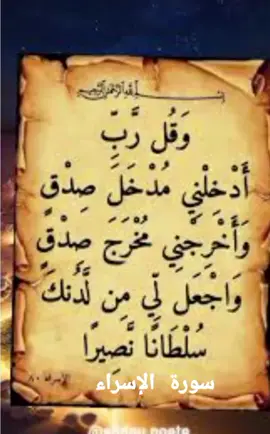 بسم الله الرحمن الرحيم
وَقُل رَّبِّ
أَدْخِلْنِي مُدْخَلَ صِدْقٍ
وَأَخْرِجْنِي مُخْرَجَ صِدْقٍ
وَاجْعَل لِّي مِن لَّدُنكَ
سُلْطَانًا نَّصِيرًا
الإسراء ٨٠
سورة الإسراء